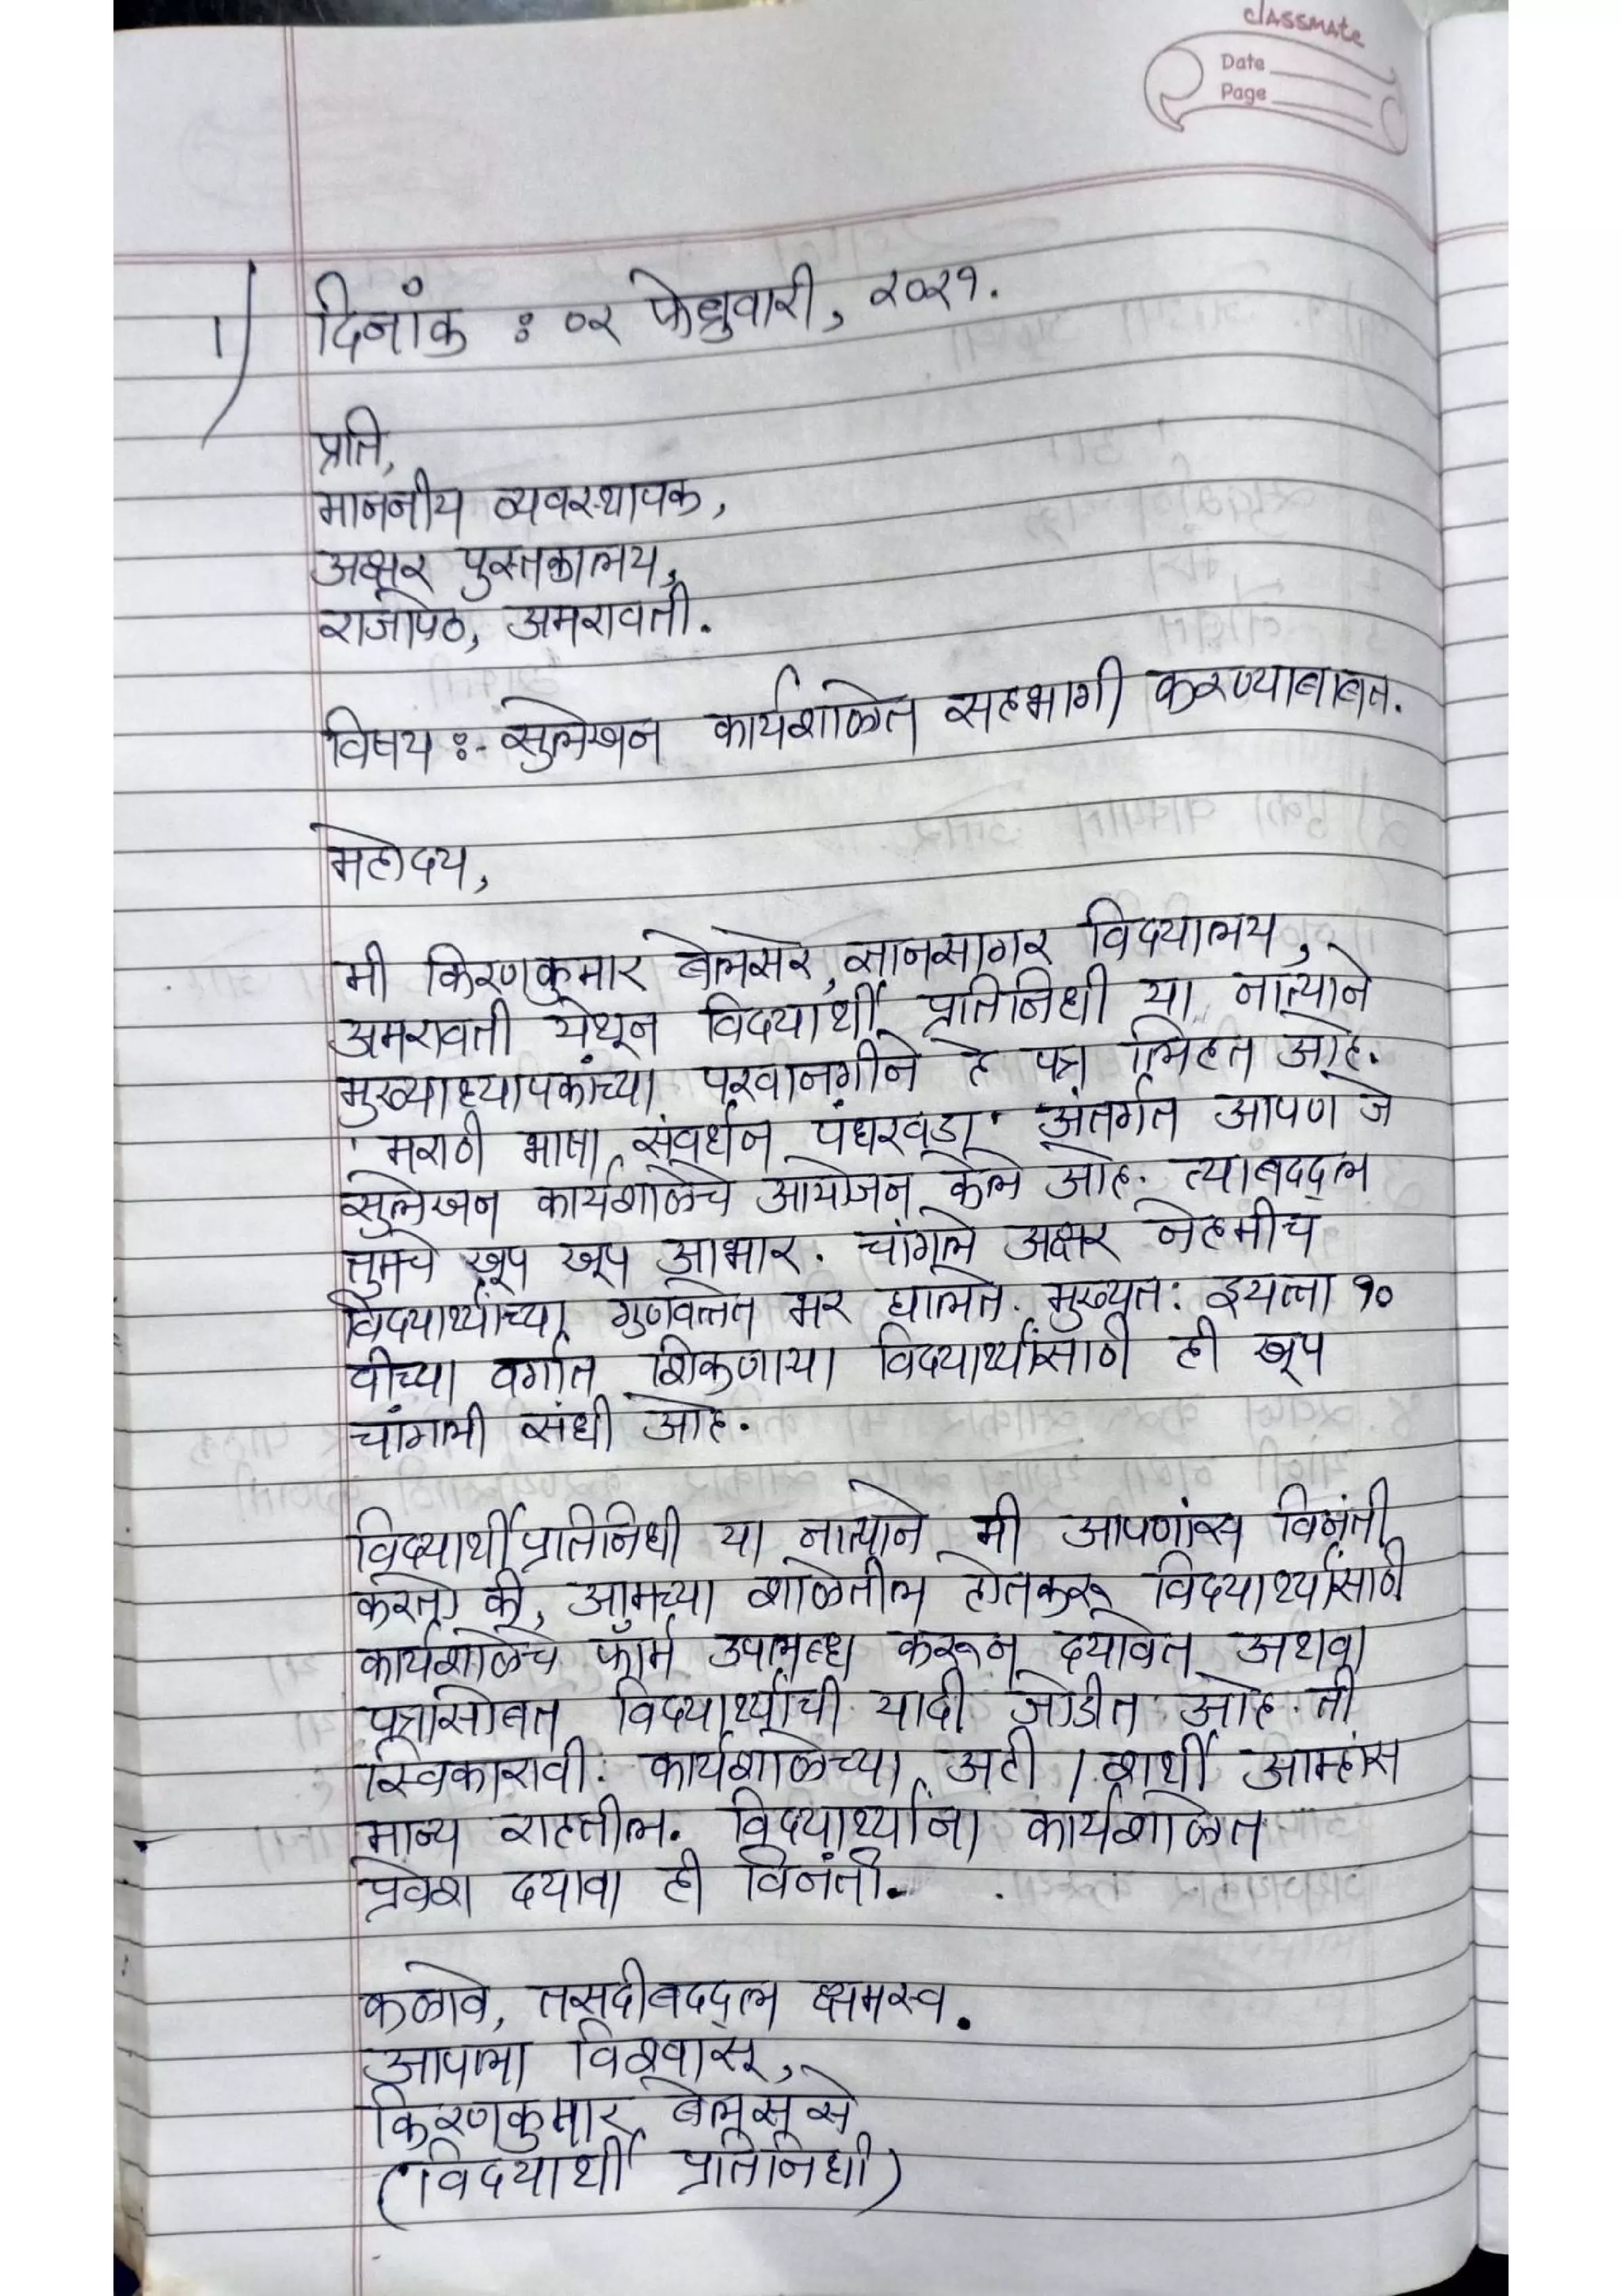 classmate
Date
Page
1) दिनांक : ०२ फेब्रुवारी, २०२१.
प्रति,
माननीय व्यवस्थापक,
अक्षर पुस्तकालय,
राजापेठ, अमरावती.
विषय :- सुलेखन कार्यशाळेत सहभागी करण्याबाबत.
महोदय,
मी किरणकुमार बेलसरे, ज्ञानसागर विदयालय,
अमरावती येथून विदयार्थी प्रतिनिधी या नात्याने
मुख्याध्यापकांच्या परवानगीने हे पत्र लिहित आहे.
'मराठी भाषा संवर्धन पंधरवडा' अंतर्गत आपण जे
सुलेखन कार्यशाळेचे आयोजन केले आहे. त्याबद्दल
तुमचे खूप खूप आभार. चांगले अक्षर नेहमीच
विदयार्थ्याच्या गुणवत्तेत भर घालते. मुख्यत: इयत्ता १०
वीच्या वर्गात शिकणाऱ्या विदयार्थ्यांसाठी ही खूप
चांगली संधी आहे.
विदयार्थी प्रतिनिधी या नात्याने मी आपणांस विनंती
करतो की, आमच्या शाळेतील होतकरू विदयार्थ्यांसाठी
कार्यशाळेचे फॉर्म उपलब्ध करून दयावेत अथवा
पत्रासोबत विदयार्थ्यांची यादी जोडीत आहे. ती
स्विकारावी. कार्यशाळेच्या अटी / शर्थी आम्हांस
मान्य राहतील. विदयार्थ्यांना कार्यशाळेत
प्रवेश दयावा ही विनंती.
कळावे, तसदीबद्दल क्षमस्व.
आपला विश्वासू,
किरणकुमार
(विदयार्थी प्रतिनिधी)